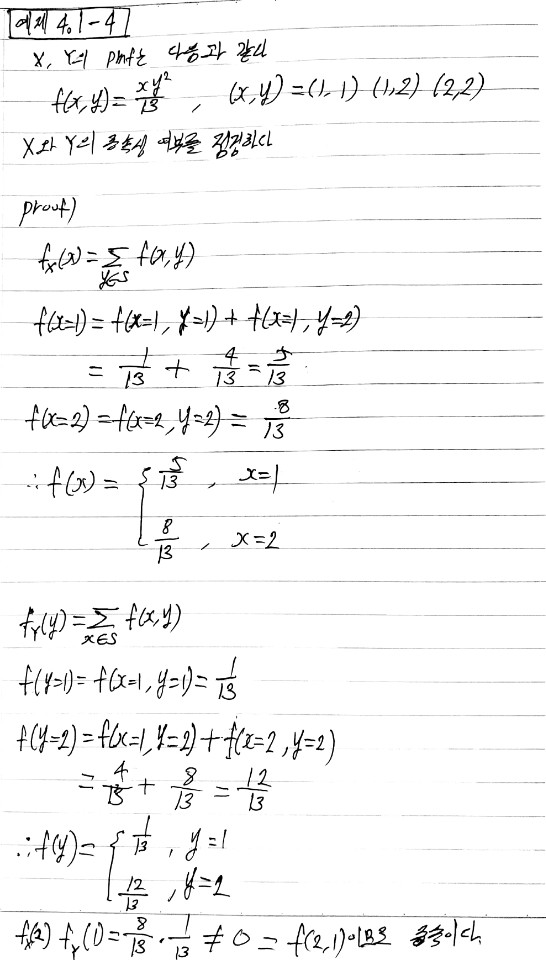 예제 4.1-4
X, Y의 pmf는 다음과 같다
f(x,y) = xy²/13 , (x,y) = (1,1) (1,2) (2,2)
X와 Y의 종속성 여부를 점검하다
proof)
f_X(x) = Σ_{y∈S} f(x,y)
f(x=1) = f(x=1, y=1) + f(x=1, y=2)
= 1/13 + 4/13 = 5/13
f(x=2) = f(x=2, y=2) = 8/13
∴ f(x) = { 5/13 , x=1
8/13 , x=2
f_Y(y) = Σ_{x∈S} f(x,y)
f(y=1) = f(x=1, y=1) = 1/13
f(y=2) = f(x=1, y=2) + f(x=2, y=2)
= 4/13 + 8/13 = 12/13
∴ f(y) = { 1/13 , y=1
12/13 , y=2
f_X(2) f_Y(1) = 8/13 · 1/13 ≠ 0 = f(2,1)이므로 종속이다.